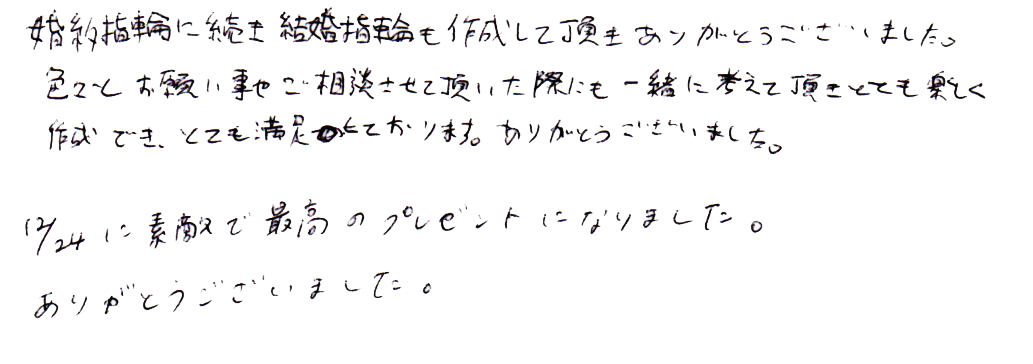 婚約指輪に続き 結婚指輪も作成して頂き ありがとうございました。
色々と お願い事や ご相談させて頂いた際にも 一緒に考えて頂きとても楽しく
作成 でき、とても満足しております。ありがとうございました。
12/24 に素敵で最高のプレゼントになりました。
ありがとうございました。